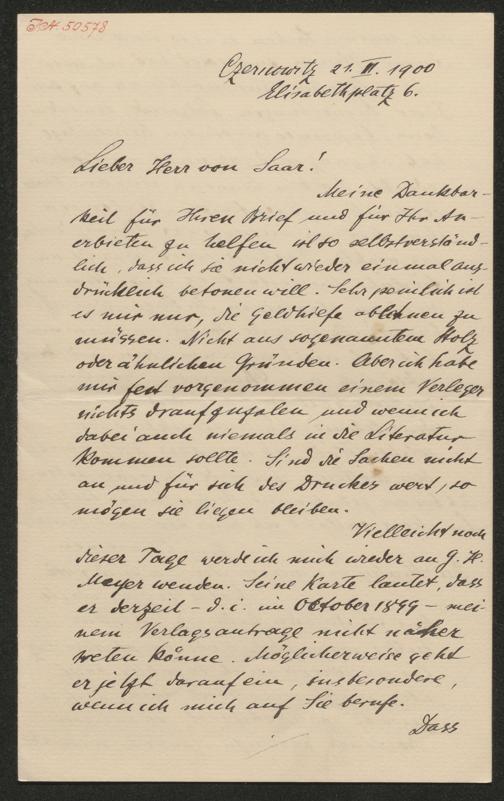 I.N. 50578
Czernowitz 21. II. 1900
Elisabethplatz 6.
Lieber Herr von Saar!
Meine Dankbar-
keit für Ihren Brief und für Ihr An-
erbieten zu helfen ist so selbstverständ-
lich, dass ich sie nicht wieder einmal aus-
drücklich betonen will. Sehr peinlich ist
es mir nur, die Geldhilfe ablehnen zu
müssen. Nicht aus sogenanntem Stolz
oder ähnlichen Gründen. Aber ich habe
mir fest vorgenommen einem Verleger
nichts draufzuzalen und wenn ich
dabei auch niemals in die Literatur
kommen sollte. Sind die Sachen nicht
an und für sich des Druckes wert, so
mögen sie liegen bleiben.
Vielleicht noch
dieser Tage werde ich mich wieder an G. H.
Meyer wenden. Seine Karte lautet, dass
er derzeit – d. i. im October 1899 – mei-
nem Verlagsantrage nicht näher
treten könne. Möglicherweise geht
er jetzt darauf ein, insbesondere,
wenn ich mich auf Sie berufe.
Dass